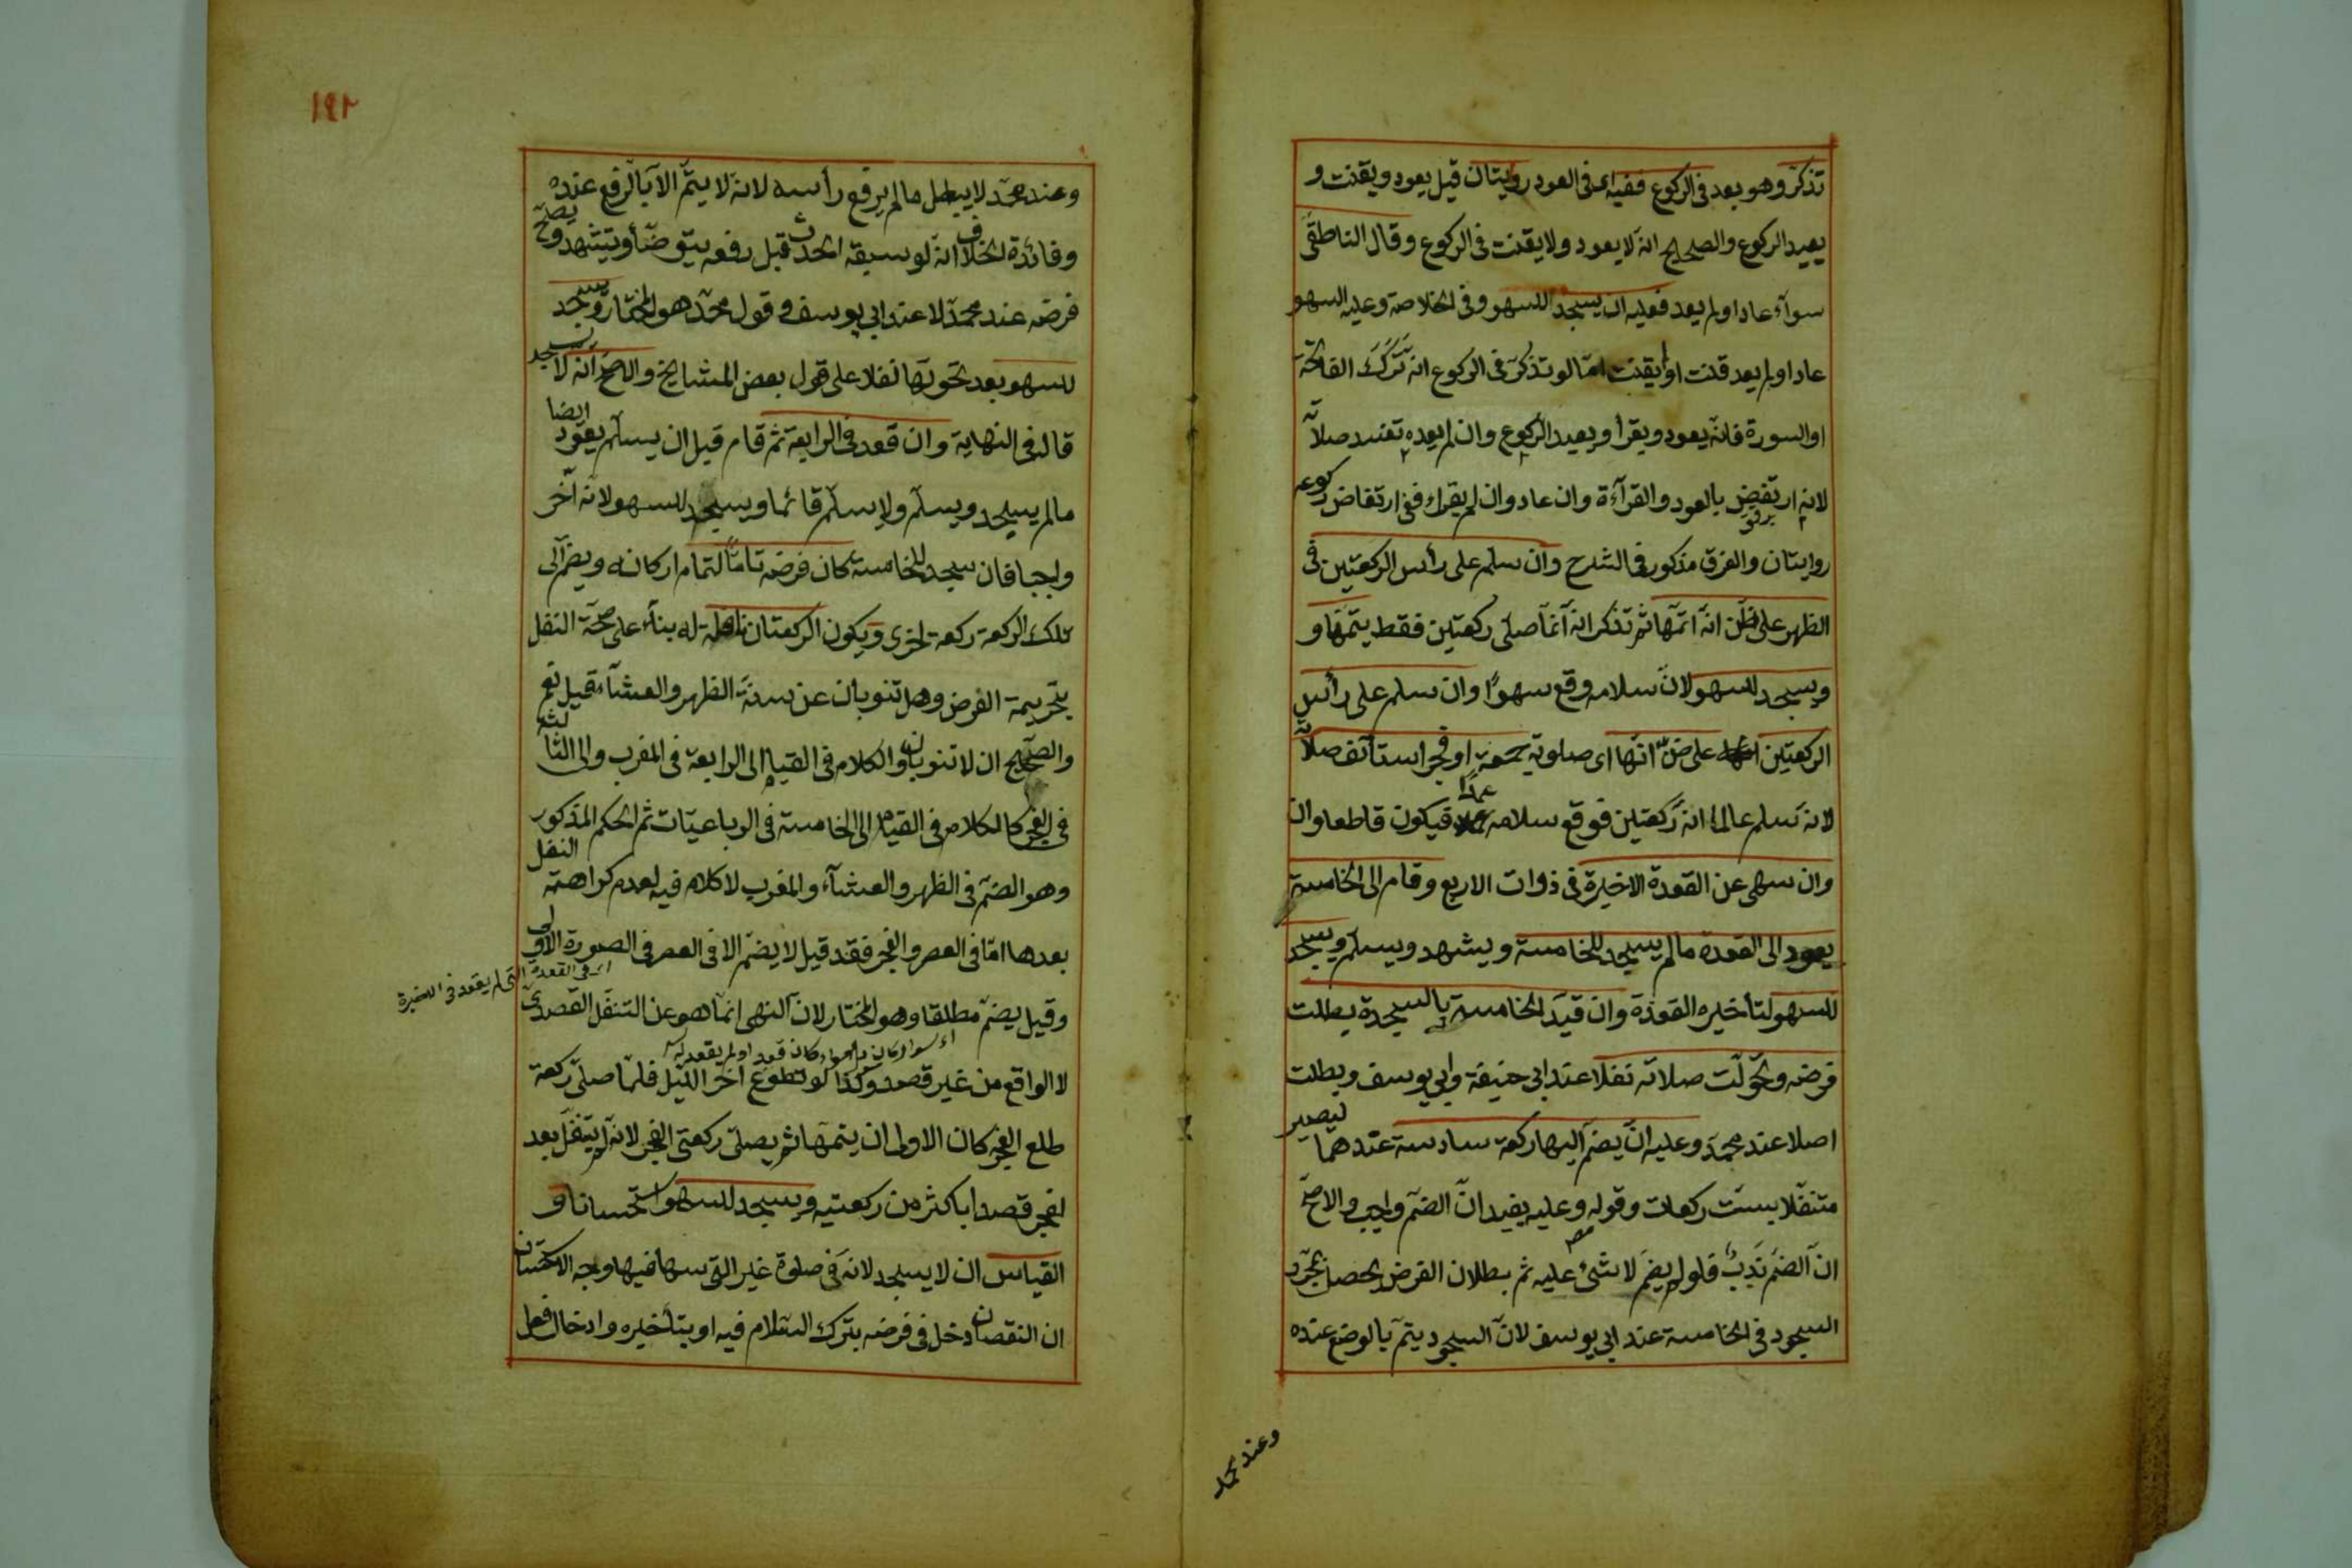 تذكر وهو بعد فى الركوع ففيه اى فى العود روايتان قيل يعود ويقنت و
يعيد الركوع والصحيح انه لا يعود ولا يقنت فى الركوع وقال الناطقى
سوآء عاد او لم يعد فعليه ان يسجد للسهو وفى الخلاصة وعليه السهو
عاد او لم يعد قنت او لم يقنت اما لو تذكر فى الركوع انه ترك الفاتحة
او السورة فانه يعود ويقرأ ويعيد الركوع وان لم يعده تفسد صلاته
لانه ارتفض بالعود والقرآءة وان عاد وان لم يقرأ ففى ارتفاض ركوعه
روايتان والفرق مذكور فى الشرح وان سلم على رأس الركعتين فى
الظهر على ظن انه اتمها ثم تذكر انه انما صلى ركعتين فقط يتمها و
ويسجد للسهو لان سلامه وقع سهوا وان سلم على رأس
الركعتين على ظن انها اى صلوته جمعة او فجر استأنف صلاته
لانه سلم عالما انه ركعتين فوقع سلامه عمدا فيكون قاطعا وان
وان سهى عن القعدة الاخيرة فى ذوات الاربع وقام الى الخامسة
يعود الى القعدة ما لم يسجد للخامسة ويشهد ويسلم ويسجد
للسهو لتأخيره القعدة وان قيد الخامسة بالسجدة بطلت
فرضه وتحولت صلاته نفلا عند ابى حنيفة وابى يوسف وبطلت
اصلا عند محمد وعليه ان يضم اليها ركعة سادسة عندهما ليصير
متنفلا بست ركعات وقوله وعليه يفيد ان الضم واجب والاصح
ان الضم ندب فلو لم يضم لا شئ عليه ثم بطلان الفرض يحصل بمجرد
السجود فى الخامسة عند ابى يوسف لان السجود يتم بالوضع عنده
وعند محمد
١٩٢
وعند محمد لا يبطل ما لم يرفع رأسه لانه لا يتم الا بالرفع عنده
وفائدة الخلاف انه لو سبقه الحدث قبل رفعه يتوضأ ويتشهد وصح
فرضه عند محمد لا عند ابى يوسف وقول محمد هو المختار ويسجد
للسهو بعد تحولها نفلا على قول بعض المشايخ والاصح انه لا يسجد
قال فى النهاية وان قعد فى الرابعة ثم قام قبل ان يسلم يعود ايضا
ما لم يسجد ويسلم ولا يسلم قائما ويسجد للسهو لانه اخر
واجبا فان سجد للخامسة كان فرضه تاما لتمام اركانه ويضم الى
تلك الركعة ركعة اخرى ويكون الركعتان نافلة له بناء على صحة النفل
بتحريمة الفرض وهل تنوبان عن سنة الظهر والعشآء قيل نعم
والصحيح ان لا تنوبان والكلام فى القيام الى الرابعة فى المغرب والى الثالثة
فى الفجر كالكلام فى القيام الى الخامسة فى الرباعيات ثم الحكم المذكور
وهو الضم فى الظهر والعشآء والمغرب لا كلام فيه لعدم كراهة النفل
بعدها اما فى العصر والفجر فقد قيل لا يضم الا فى العصر فى الصورة الاولى
اى فى القعدة التى لم يقعد فى الاخيرة
وقيل يضم مطلقا وهو المختار لان النهى انما هو عن التنفل القصدى
كان قعد او لم يقعد
لا الواقع من غير قصد وكذا لو تطوع اخر الليل فلما صلى ركعة
طلع الفجر كان الاولى ان يتمها ثم يصلى ركعتى الفجر لانه لم يتنفل بعد
الفجر قصدا باكثر من ركعتيه ويسجد للسهو استحسانا و
القياس ان لا يسجد لانه فى صلوة غير التى سها فيها وجه الاستحسان
ان النقصان دخل فى فرضه بترك السلام فيه او بتأخيره وادخال فعل